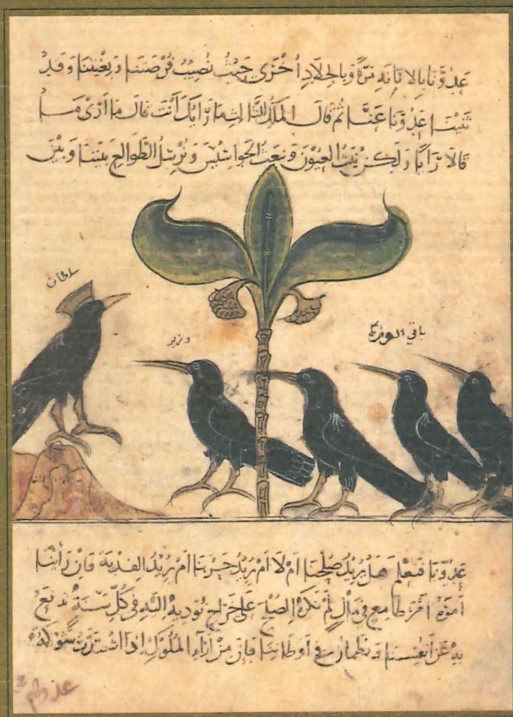 عدونا بالاناه مرة وبالجلاد اخرى حيث نصيب فرصتنا وبغيتنا وقد
ثنينا عدونا عنا ثم قال الملك للثالث ما رايك انت قال ما ارى ما
قالا رايا ولكن نبث العيون ونبعث الجواسيس ونرسل الطوالع بيننا وبين
سلطان
وزير
باقي الوزرا
عدونا فنعلم هل يريد صلحنا ام لا ام يريد حربنا ام يريد الفدية فان راينا
امره امر طامع في مال لم نكره الصلح على خراج نوديه اليه في كل سنة ندفع
به عن انفسنا ونطمان في اوطاننا فان من آراء الملوك اذا اشتدت شوكة
عدوهم